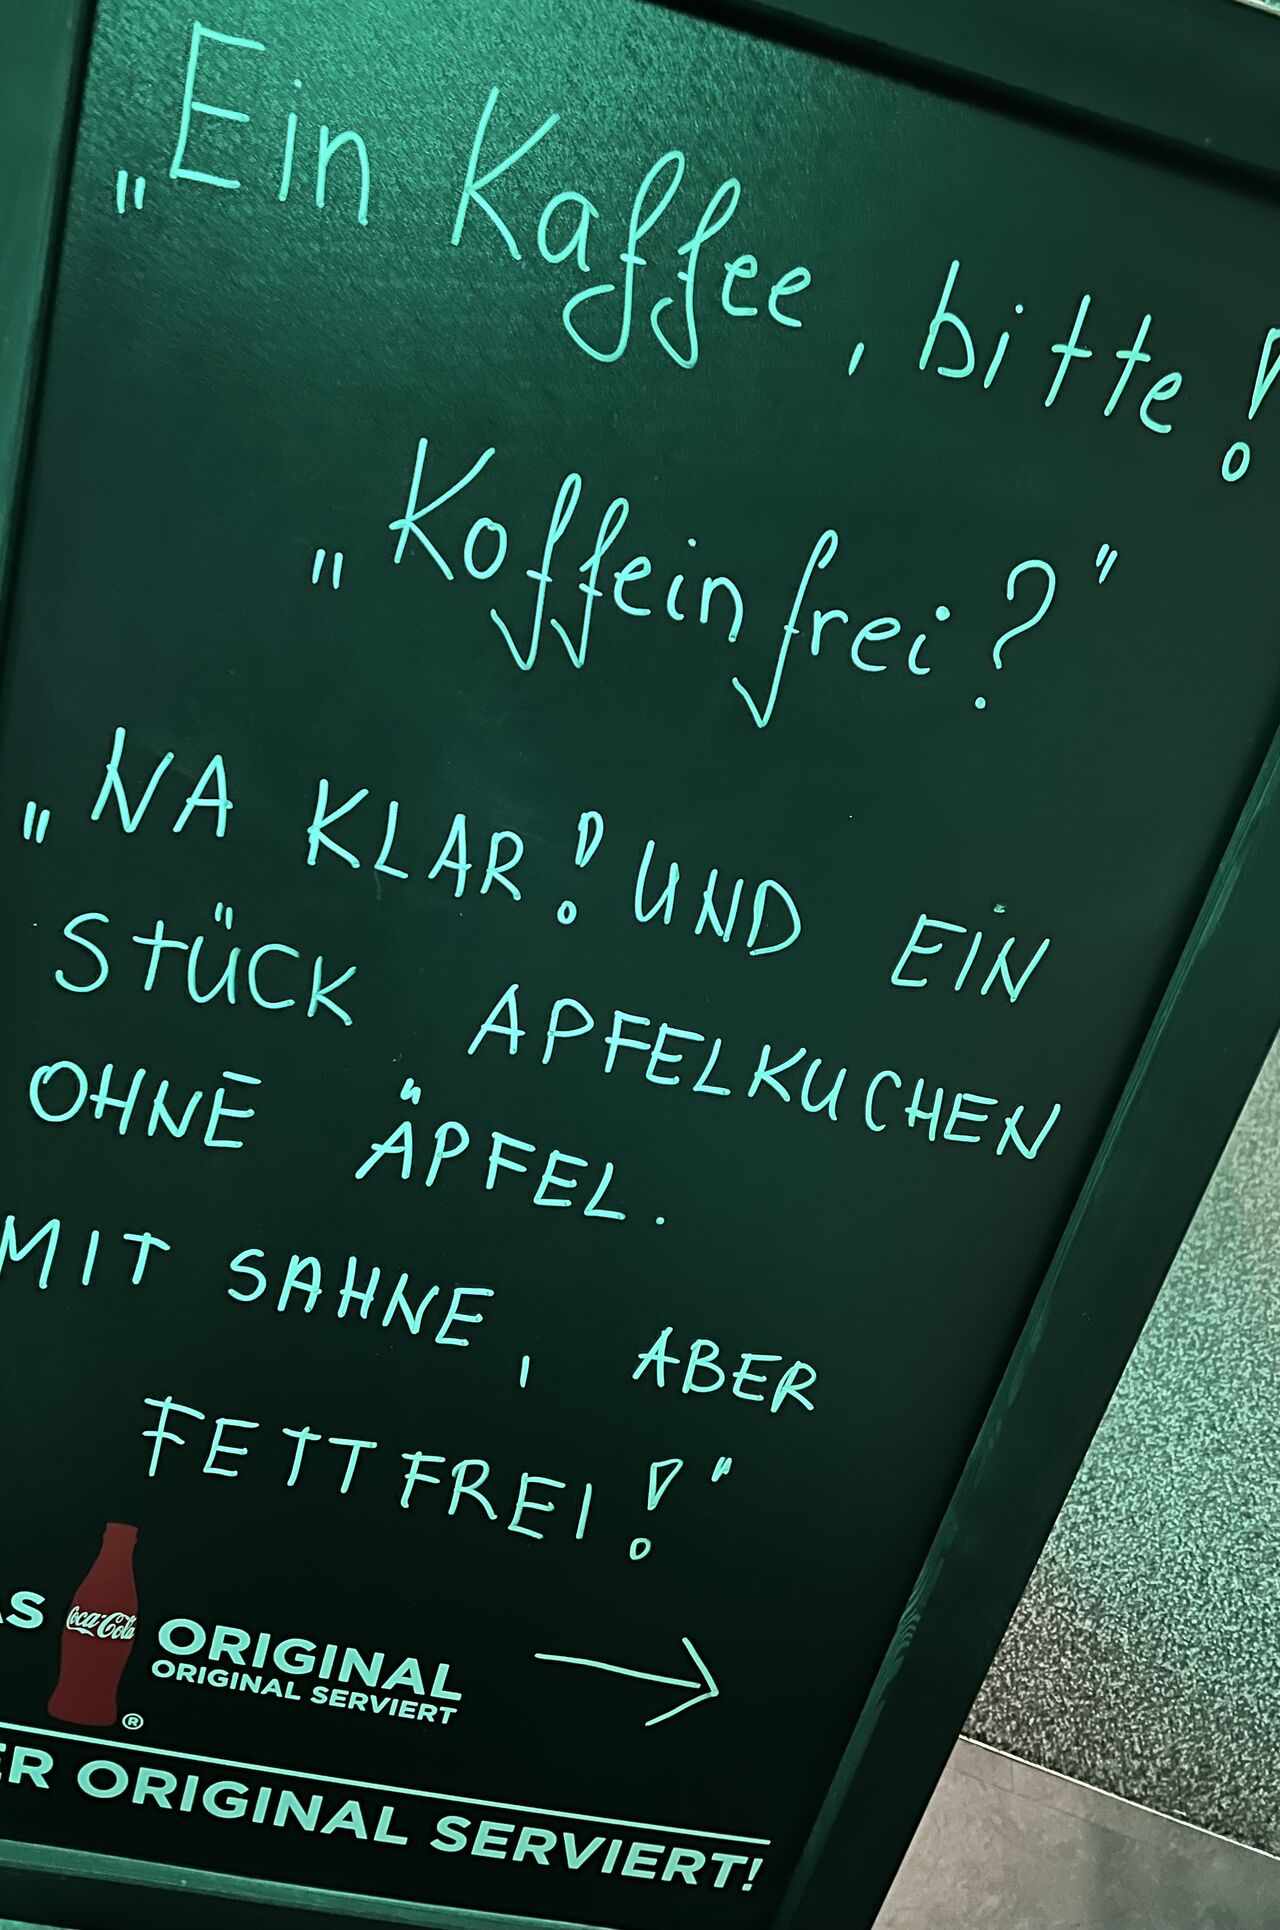 „Ein Kaffee, bitte!
„Koffeinfrei?"
„NA KLAR! UND EIN
STÜCK APFELKUCHEN
OHNE ÄPFEL.
MIT SAHNE, ABER
FETTFREI!"
Coca-Cola
ORIGINAL
ORIGINAL SERVIERT
®
ORIGINAL SERVIERT!